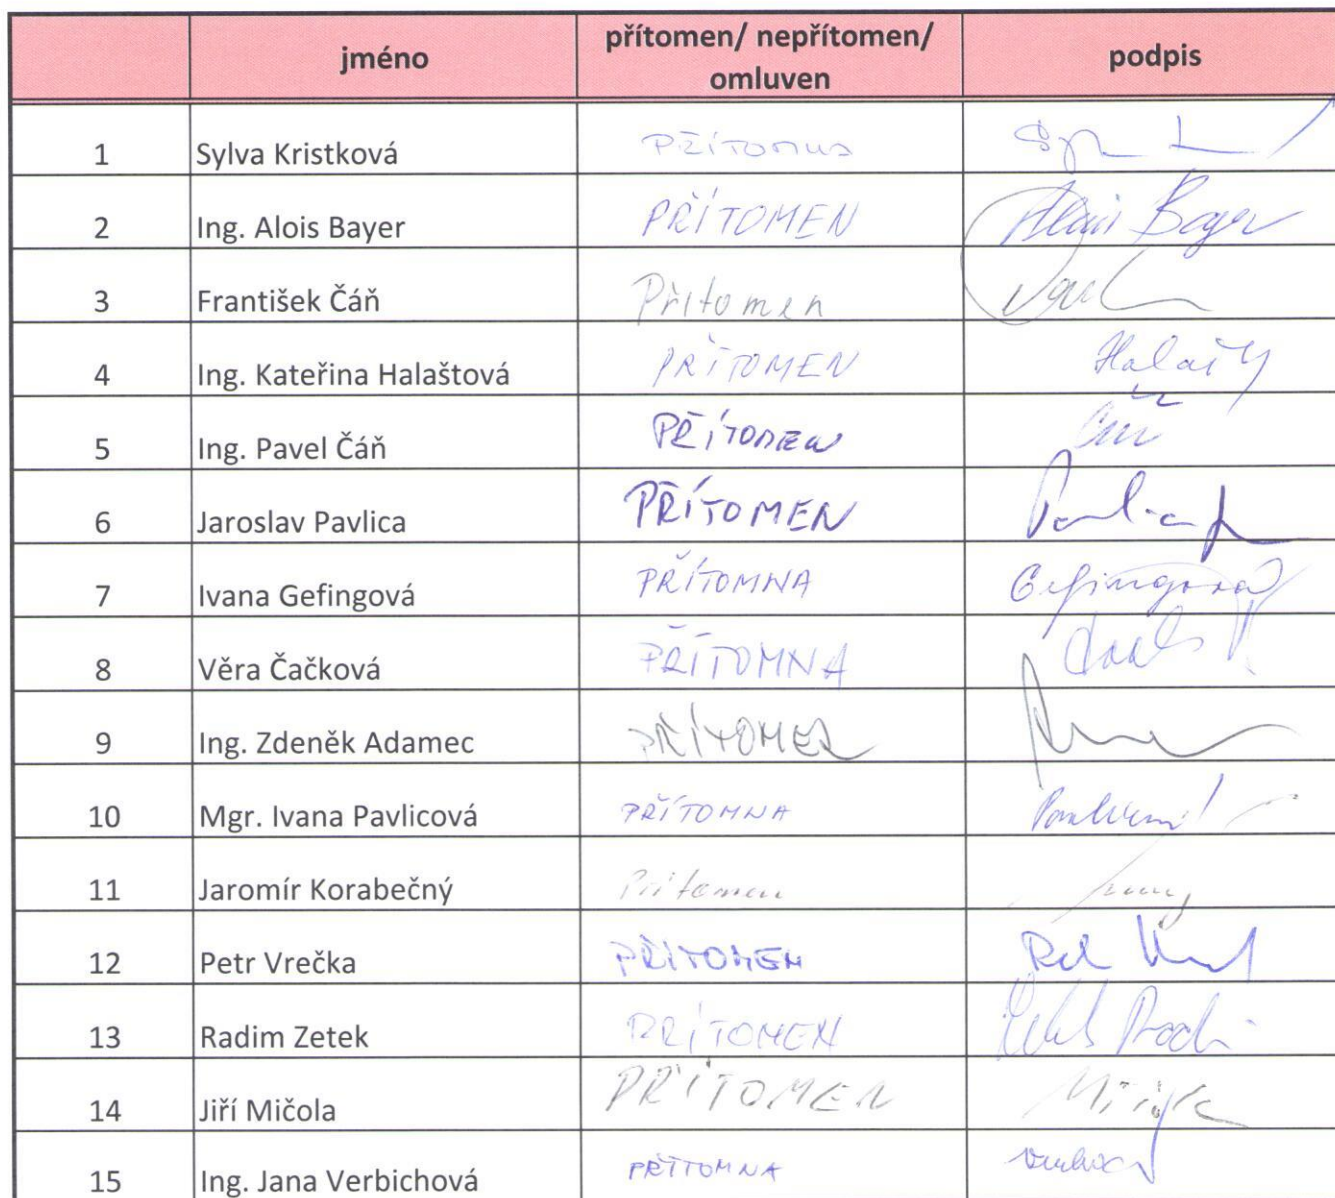 jméno přítomen/ nepřítomen/ omluven podpis
1 Sylva Kristková
2 Ing. Alois Bayer PŘÍTOMEN Alois Bayer
3 František Čáň Přítomen
4 Ing. Kateřina Halaštová PŘÍTOMEN
5 Ing. Pavel Čáň PŘÍTOMEN
6 Jaroslav Pavlica PŘÍTOMEN
7 Ivana Gefingová PŘÍTOMNA Gefingová
8 Věra Čačková PŘÍTOMNA
9 Ing. Zdeněk Adamec PŘÍTOMEN
10 Mgr. Ivana Pavlicová PŘÍTOMNA
11 Jaromír Korabečný Přítomen
12 Petr Vrečka PŘÍTOMEN
13 Radim Zetek PŘÍTOMEN
14 Jiří Mičola PŘÍTOMEN
15 Ing. Jana Verbichová PŘÍTOMNA